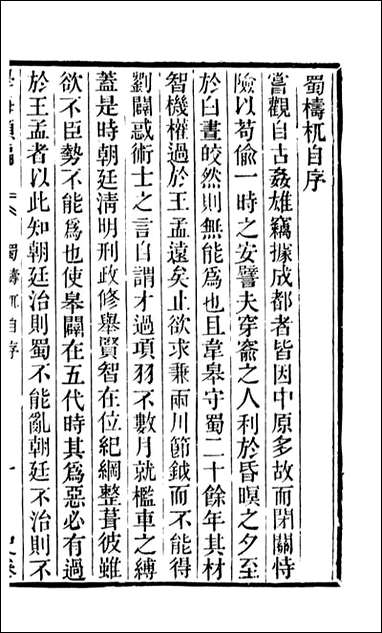 蜀檮杌自序
嘗觀自古姦雄竊據成都者皆因中原多故而閉關恃
險以苟偷一時之安譬夫穿窬之人利於昏暝之夕至
於白晝皎然則無能爲也且韋皋守蜀二十餘年其材
智機權過於王孟遠矣止欲求兼兩川節鉞而不能得
劉闢惑術士之言自謂才過項羽不數月就檻車之縛
蓋是時朝廷清明刑政修舉賢智在位紀綱整葺彼雖
欲不臣勢不能爲也使皋闢在五代時其爲惡必有過
於王孟者以此知朝廷治則蜀不能亂朝廷不治則不
蜀檮杌自序 一